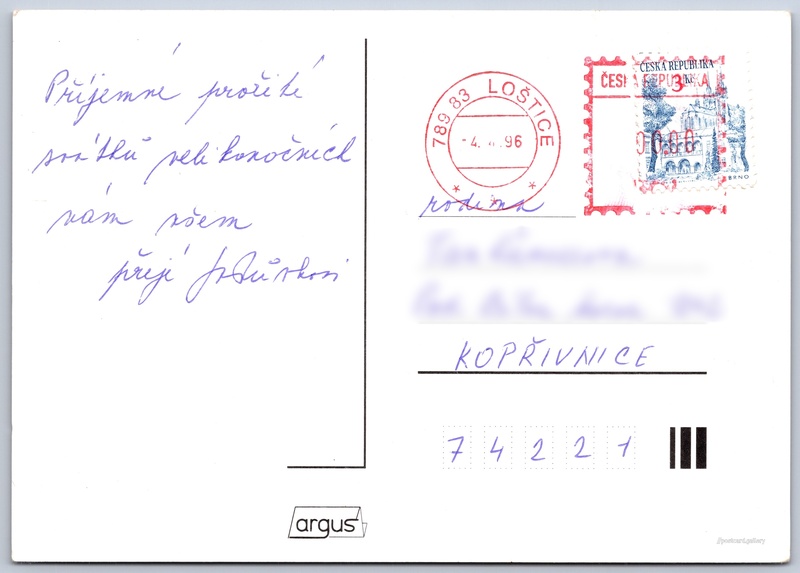 Příjemné prožité
svátků velikonočních
vám všem
přejí
789 83 LOŠTICE
-4. 4. 96
ČESKÁ REPUBLIKA
3 Kč
ČESKÁ REPUBLIKA
BRNO
rodina
KOPŘIVNICE
7 4 2 2 1
argus